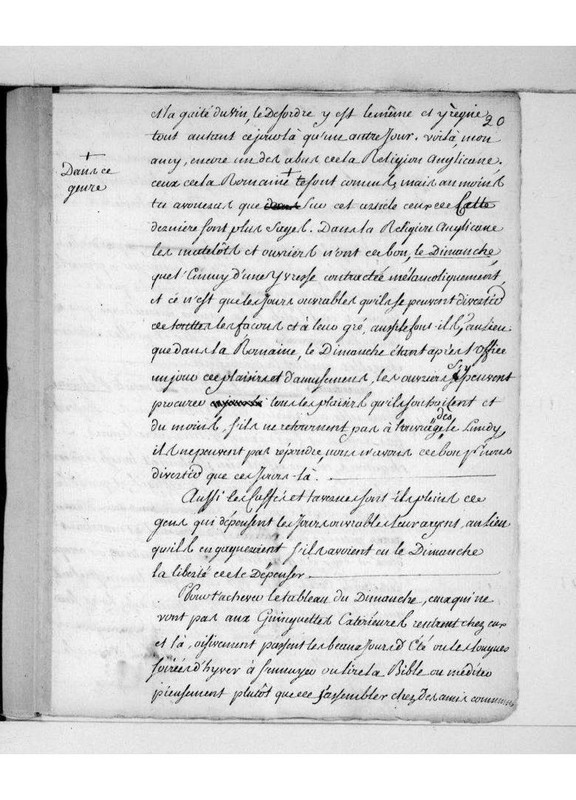 20
et la gaité du vin, le desordre y est le même et y regne
tout autant ce jour là qu'un autre jour. voilà, mon
amy, encore un des abus de la Religion Anglicane.
ceux de la Romaine + te sont connus, mais au moins
+ Dans ce
genre
tu avoueras que sur cet article ceux de Cette
derniere sont plus sages. Dans la Religion Anglicane
les matelots et ouvriers n'ont de bon, le Dimanche,
que l'Ennuy d'une Yvresse contractée mélancoliquement,
et ce n'est que les jours ouvrables qu'ils se peuvent divertir
de toutes les facons et à leur gré, aussi le font ils, au lieu
que dans la Romaine, le Dimanche étant après l'office
un jour de plaisirs et d'amusemens, les ouvriers s'y peuvent
procurer tous les plaisirs qu'ils souhaitent et
du moins, s'ils ne retournent pas à l'ouvrage dès le Lundy,
ils ne peuvent pas répondre, nous n'avons de bon pr. nous
divertir que ces jours-là.
Aussi les Caffés et tavernes sont ils pleins de
gens qui dépensent les jours ouvrables leur argent, au lieu
qu'ils en gagneroient s'ils avoient eu le Dimanche
la liberté de le Depenser.
Pour t'achever le tableau du Dimanche, ceux qui ne
vont pas aux Guinguettes Exterieures rentrent chez eux
et là, oisivement passent les beaux jours d'Eté ou les longues
soirées d'hyver à s'ennuyer ou lire la Bible ou mediter
pieusement plutot que de s'assembler chez des amis communs